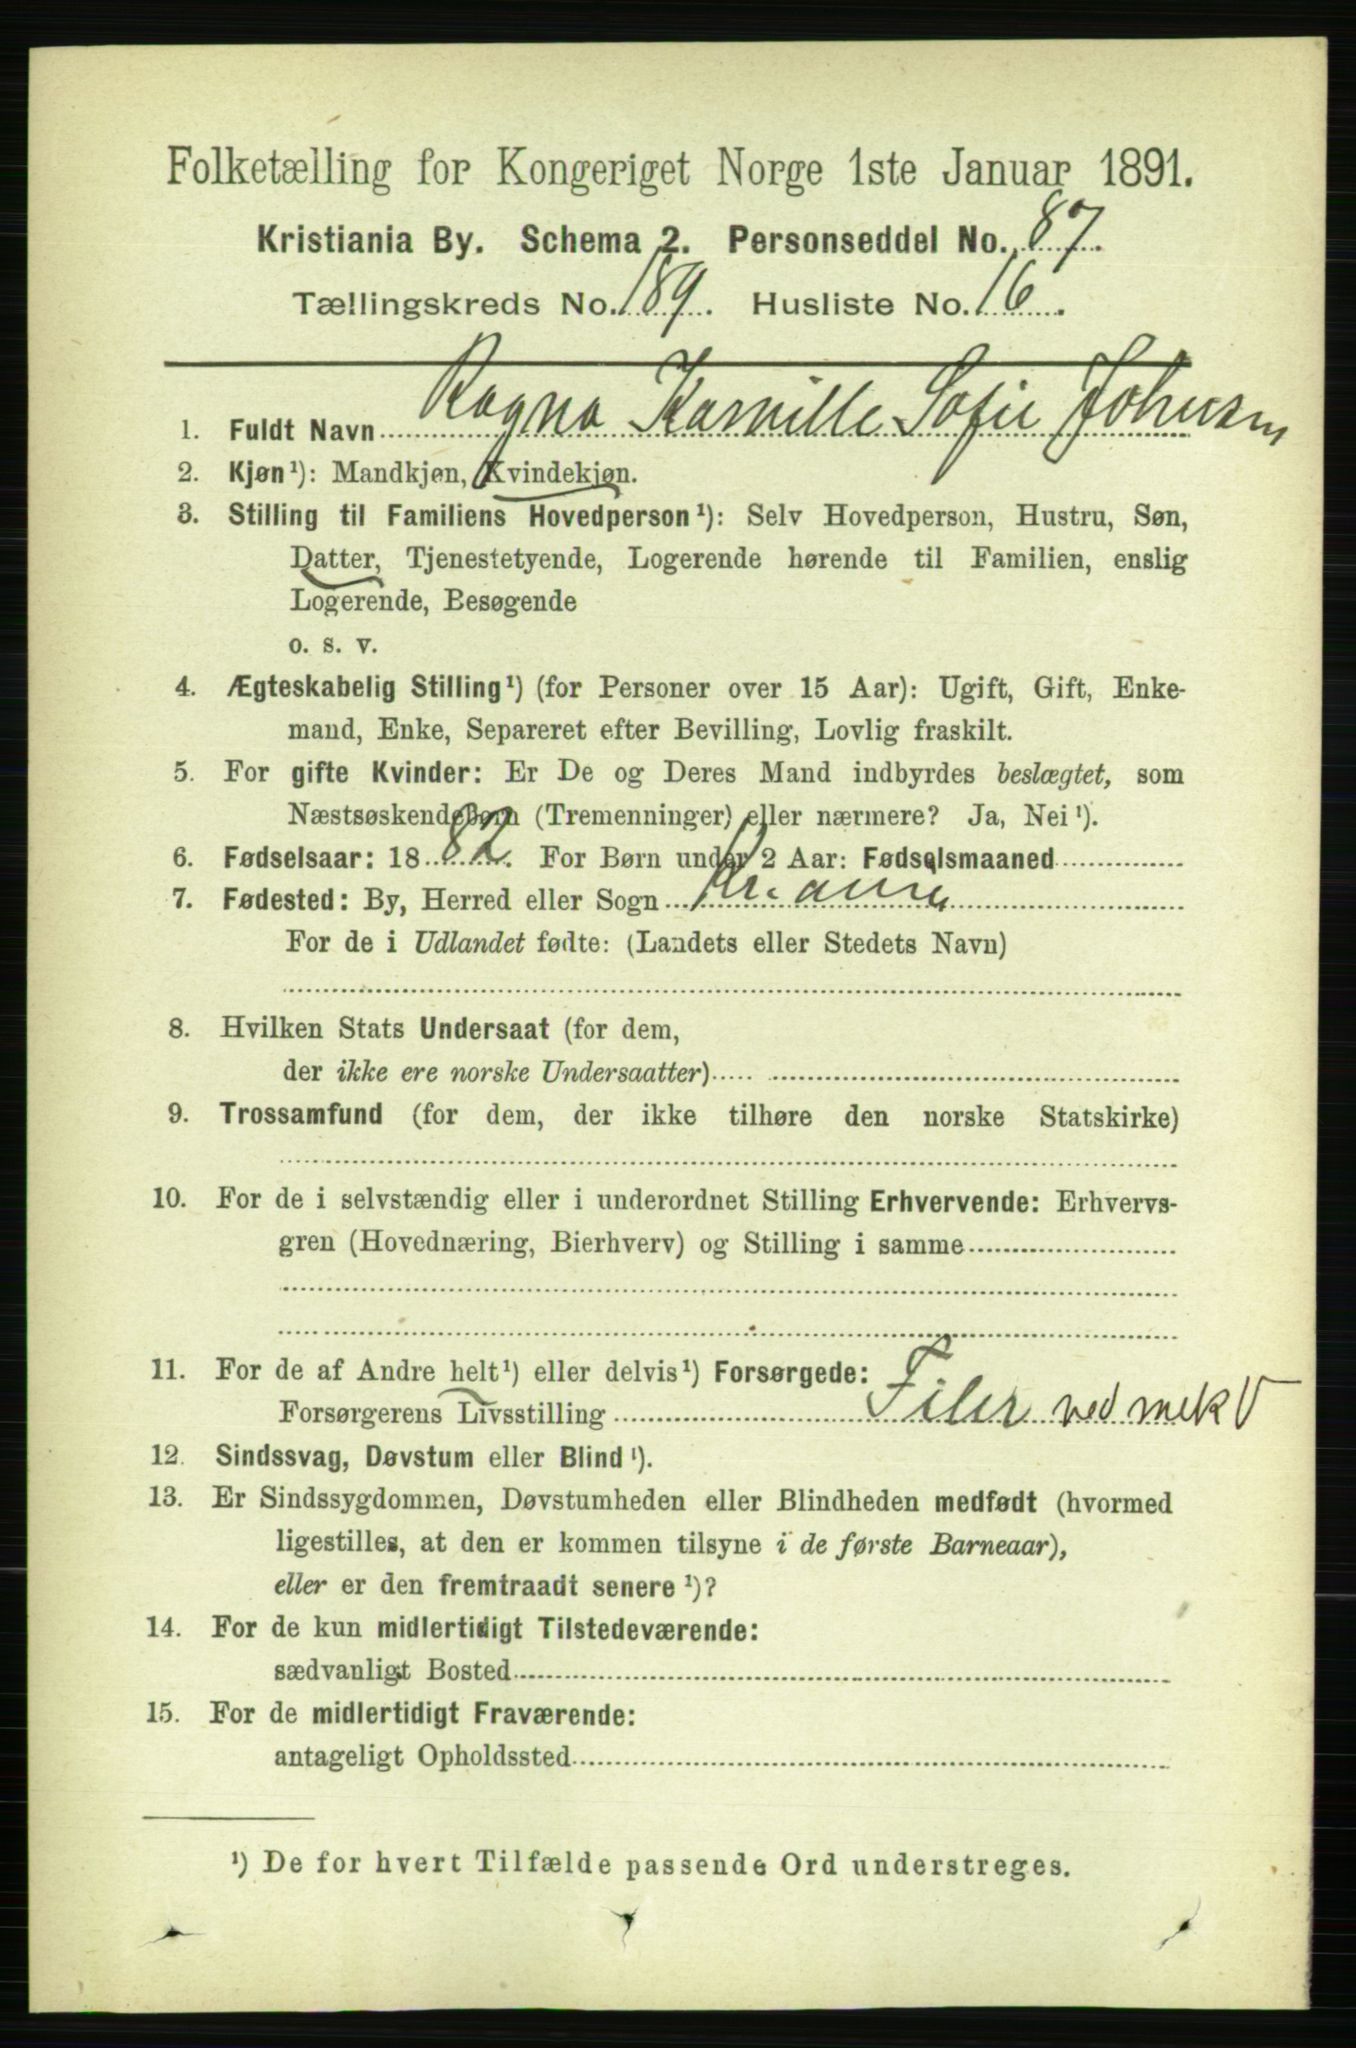 Folketælling for Kongeriget Norge 1ste Januar 1891.
Kristiania By. Schema 2. Personseddel No. 87.
Tællingskreds No. 189. Husliste No. 16.
1. Fuldt Navn Ragna Kamille Sofie Johnsen
2. Kjøn¹): Mandkjøn, Kvindekjøn.
3. Stilling til Familiens Hovedperson¹): Selv Hovedperson, Hustru, Søn,
Datter, Tjenestetyende, Logerende hørende til Familien, enslig
Logerende, Besøgende
o. s. v.
4. Ægteskabelig Stilling¹) (for Personer over 15 Aar): Ugift, Gift, Enke-
mand, Enke, Separeret efter Bevilling, Lovlig fraskilt.
5. For gifte Kvinder: Er De og Deres Mand indbyrdes beslægtet, som
Næstsøskendebørn (Tremenninger) eller nærmere? Ja, Nei¹).
6. Fødselsaar: 1882. For Børn under 2 Aar: Fødselsmaaned
7. Fødested: By, Herred eller Sogn Kr.ania
For de i Udlandet fødte: (Landets eller Stedets Navn)
8. Hvilken Stats Undersaat (for dem,
der ikke ere norske Undersaatter)
9. Trossamfund (for dem, der ikke tilhøre den norske Statskirke)
10. For de i selvstændig eller i underordnet Stilling Erhvervende: Erhvervs-
gren (Hovednæring, Bierhverv) og Stilling i samme
11. For de af Andre helt¹) eller delvis¹) Forsørgede:
Forsørgerens Livsstilling Filer ved mek V
12. Sindssvag, Døvstum eller Blind¹).
13. Er Sindssygdommen, Døvstumheden eller Blindheden medfødt (hvormed
ligestilles, at den er kommen tilsyne i de første Barneaar),
eller er den fremtraadt senere¹)?
14. For de kun midlertidigt Tilstedeværende:
sædvanligt Bosted
15. For de midlertidigt Fraværende:
antageligt Opholdssted
¹) De for hvert Tilfælde passende Ord understreges.